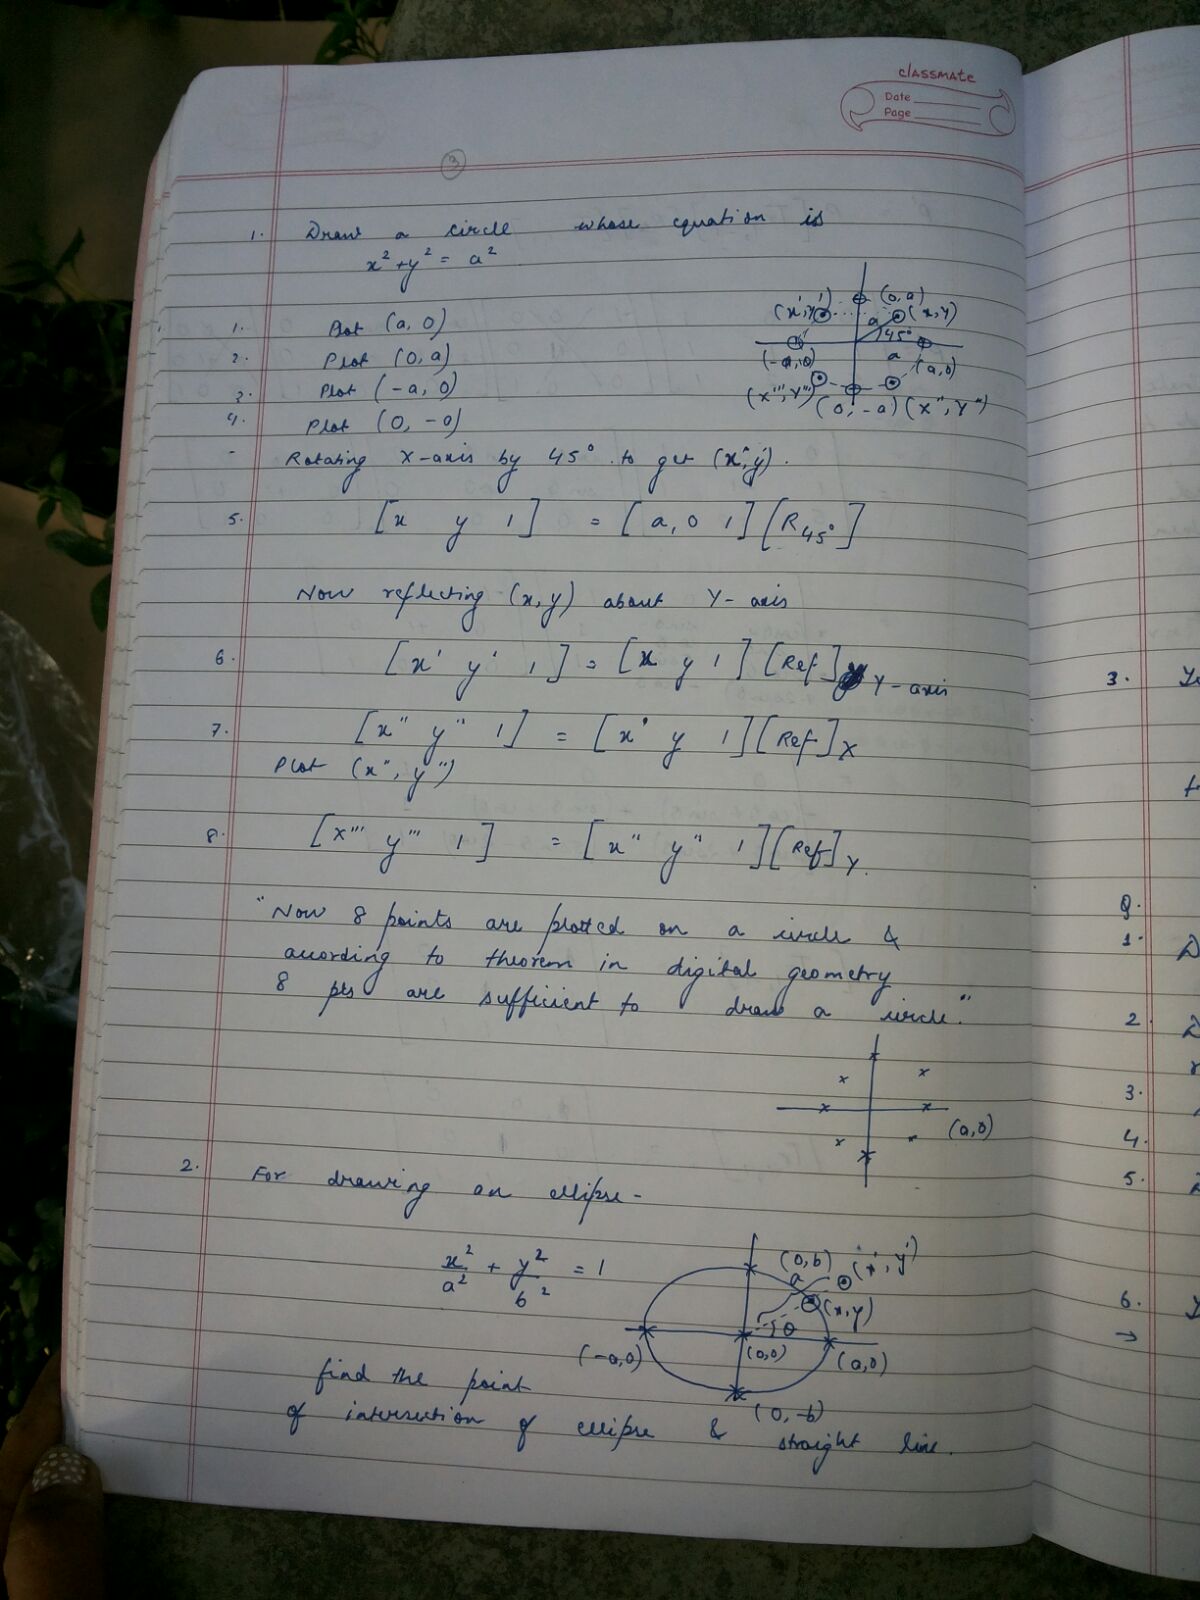 classmate
Date
Page
3
1. Draw a circle whose equation is
x² + y² = a²
1. Plot (a, 0)
2. Plot (0, a)
3. Plot (-a, 0)
4. Plot (0, -a)
(0, a)
(x', y')
(x, y)
a
45°
(-a, 0)
a
(a, 0)
(x''', y''')
(0, -a) (x'', y'')
- Rotating X-axis by 45° to get (x, y).
5. [x y 1] = [a, 0 1] [R45°]
Now reflecting (x, y) about Y-axis
6. [x' y' 1] = [x y 1] [Ref] Y-axis
7. [x'' y'' 1] = [x y 1] [Ref]X
Plot (x'', y'')
8. [x''' y''' 1] = [x'' y'' 1] [Ref]Y.
"Now 8 points are plotted on a circle &
according to theorem in digital geometry
8 pts are sufficient to draw a circle."
(a, 0)
2. For drawing an ellipse -
x²/a² + y²/b² = 1
(0, b) (x', y')
a
(x, y)
θ
(-a, 0)
(0, 0)
(a, 0)
(0, -b)
find the point
of intersection of ellipse & straight line.
3.
Q.
1.
2.
3.
4.
5.
6.
→